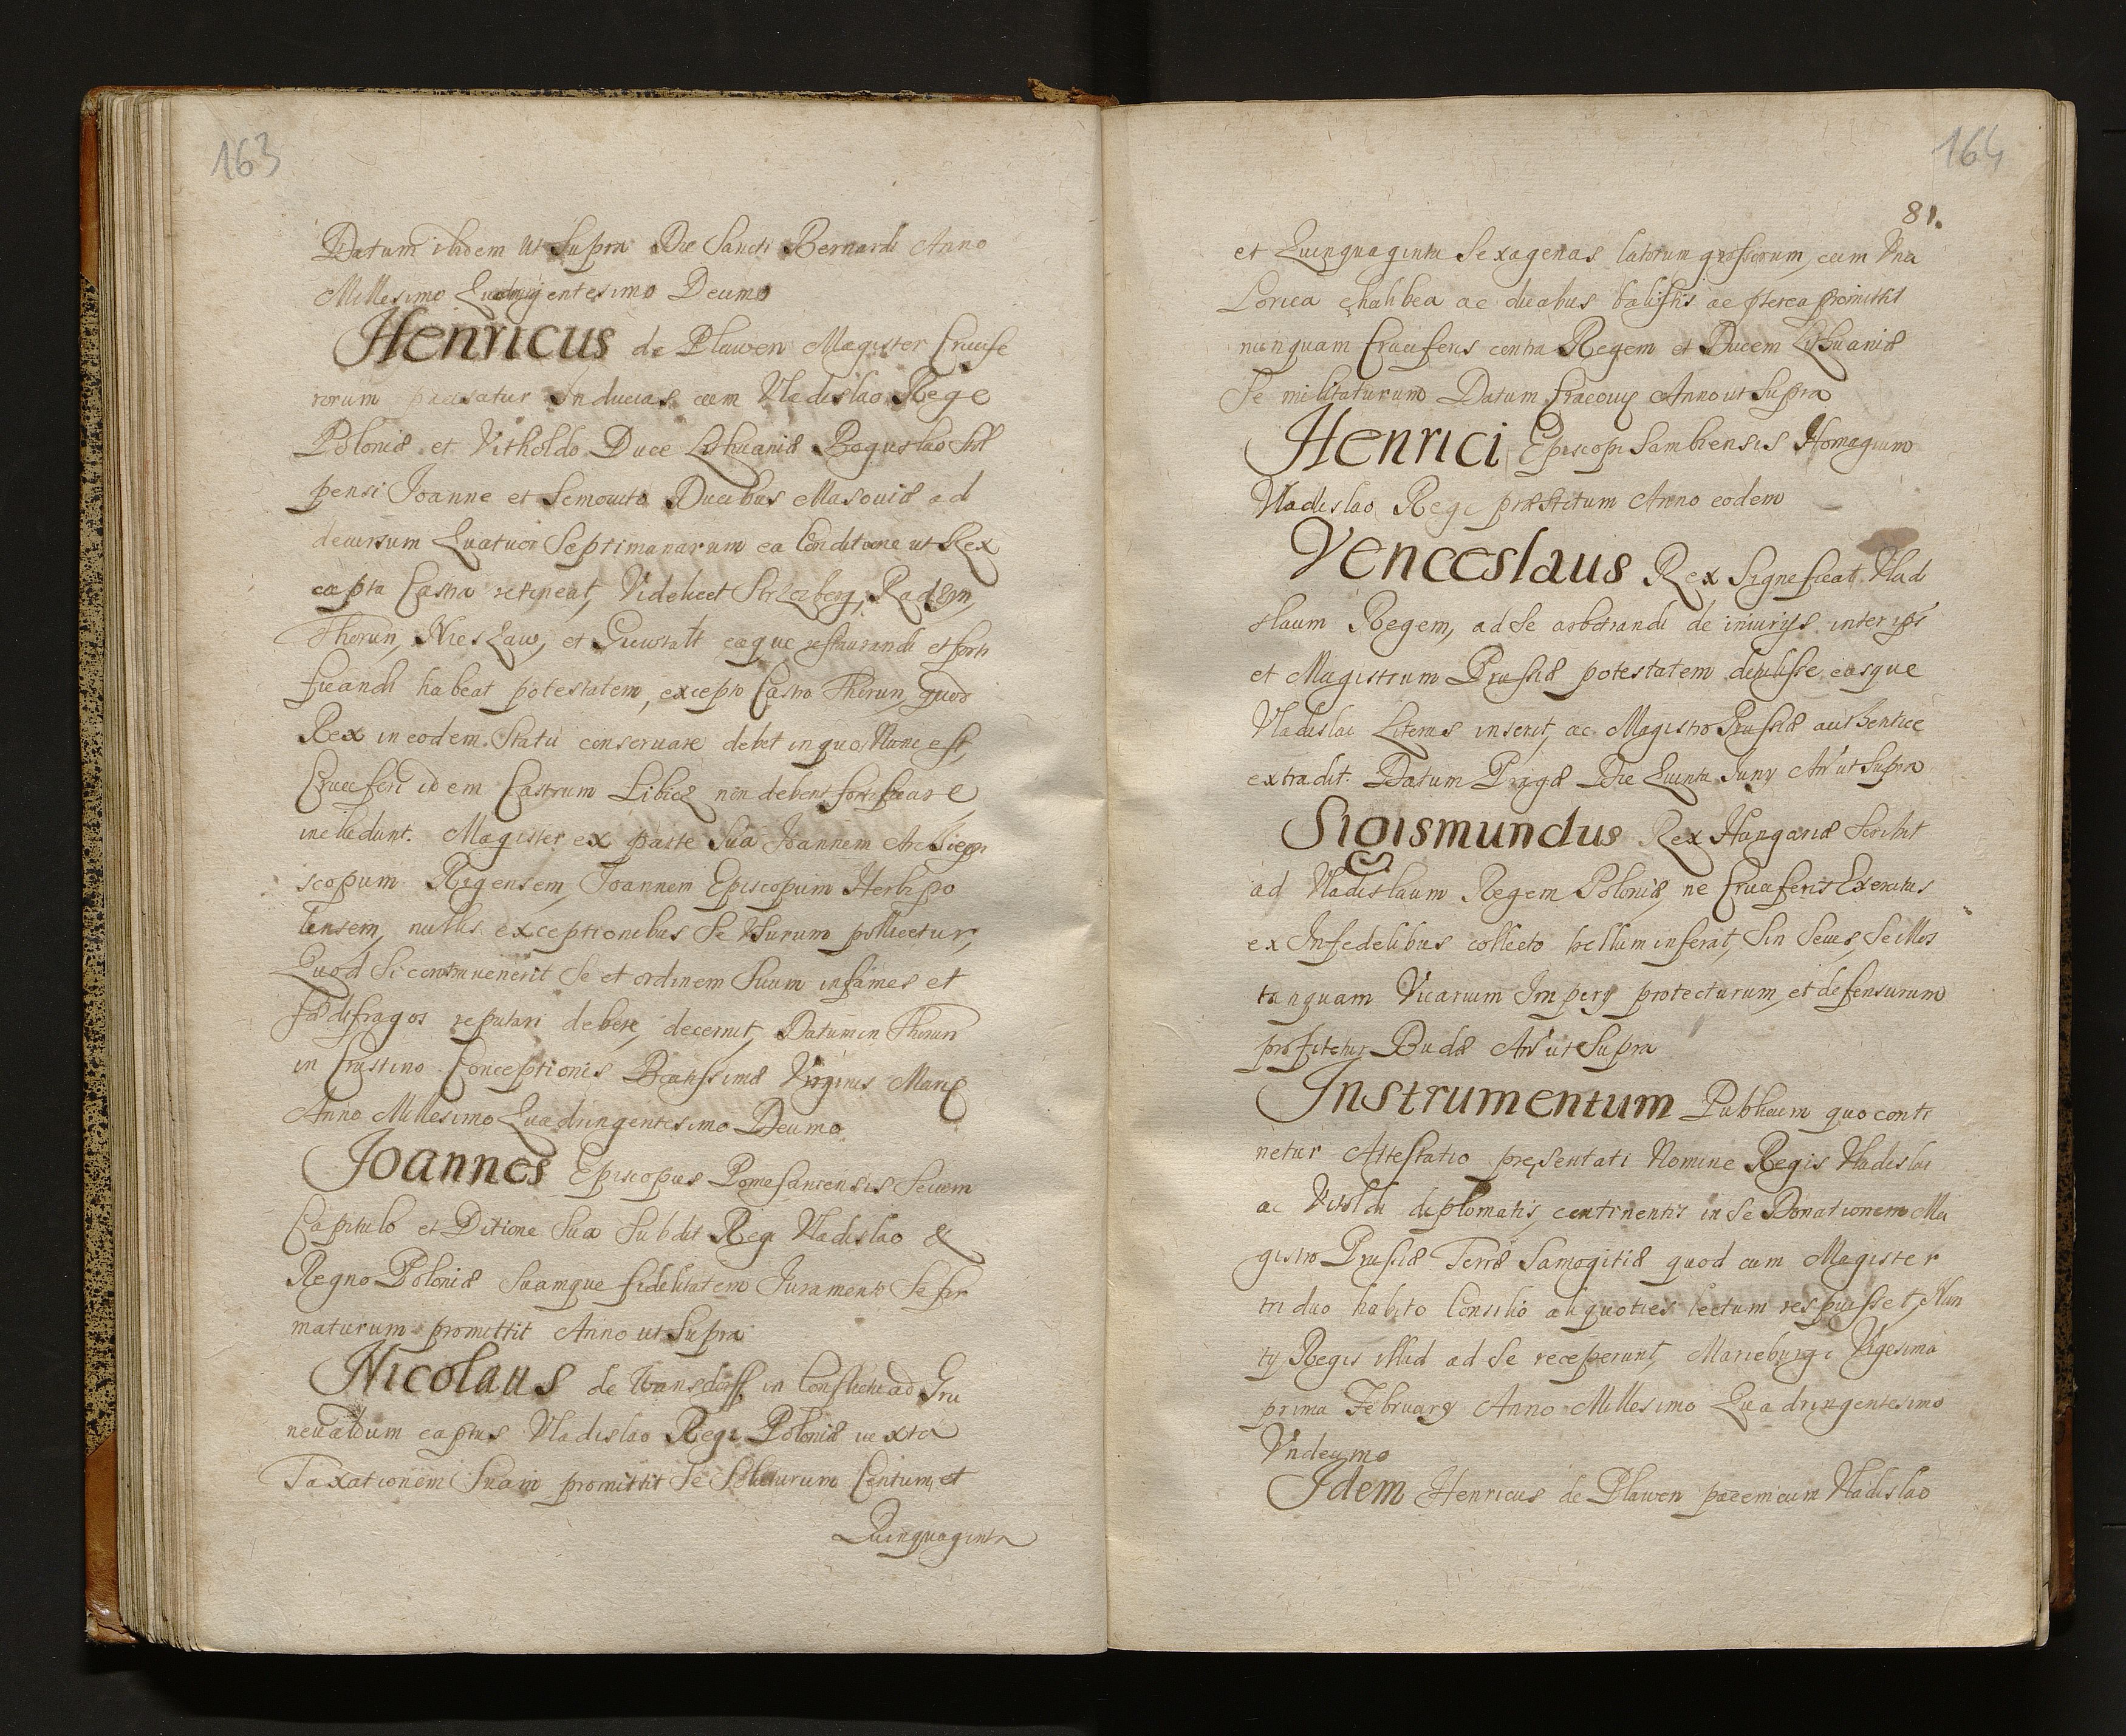 163
Datum ibidem ut Supra Die Sancti Bernardi Anno
Millesimo Quadringentesimo Decimo
Henricus de Plawen Magister Crucife
rorum paciscatur Inducias cum Vladislao Rege
Poloniæ et Vitholdo Duce Lithuaniæ Boguslao Stol
pensi Joanne et Semouito Ducibus Masouiæ ad
decursum Quatuor Septimanarum ea Conditione ut Rex
capta Castra retineat, Videlicet Strozberg, Radzyn,
Thorun, Nieszaw, et Guwstatt eaque restaurandi et forti
ficandi habeat potestatem, excepto Castro Thorun, quod
Rex in eodem Statu conseruare debet in quo Nunc est,
Cruciferi idem Castrum Libicz non debent fortificare
includunt. Magister ex parte Sua Joannem Archiepi
scopum Rigensem, Joannem Episcopum Herbipo
lensem, nullis exceptionibus Se Usurum pollicetur,
Quod Si contrauenerit Se et ordinem Suum infames et
fœdifragos reputari debere, decernit, Datum in Thorun
in Crastino Conceptionis Beatissimæ Virginis Mariæ
Anno Millesimo Quadringentesimo Decimo
Joannes Episcopus Pomesaniensis Se cum
Capitulo et Ditione Sua Subdit Regi Vladislao &
Regno Poloniæ Suamque fidelitatem Juramento Se fir
maturum promittit Anno ut Supra
Nicolaus de in Conflictu ad Gru
neualdum captus Vladislao Regi Poloniæ iuxta
Taxationem Suam promittit Se Soluturum Centum et
Quinquaginta
164
81.
et Quinquaginta Sexagenas latorum grossorum, cum Una
Lorica chalibea ac duabus balistis ac pterea promittit
nunquam Cruciferis contra Regem et Ducem Lithuaniæ
Se militaturum Datum Cracouię Anno ut Supra
Henrici Episcopi Sambiensis Homagium
Vladislao Regi præstitum Anno eodem
Venceslaus Rex Significat Vladi
slaum Regem, ad Se arbitrandi de iniurijs inter ips
et Magistrum Prussiæ potestatem detulisse easque
Vladislai Literas inserit, ac Magistro Prussiæ authentice
extradit. Datum Pragæ Die Quinta Juny An ut Supra
Sigismundus Rex Hungariæ Scribit
ad Vladislaum Regem Poloniæ, ne Cruciferis Exercitus
ex Infidelibus collecto bellum inferat, Sin Secus, Se illos
tanquam Vicarium Impery protecturum, et defensurum
profitetur Budæ An ut Supra
Instrumentum Publicum quo conti
netur Attestatio pręsentati Nomine Regis Vladislai
ac Vitoldi diplomatis, continentis in Se Donationem Ma
gistro Prusiæ Terræ Samogitiæ quod cum Magister
triduo habito Consilio aliquoties lectum respuisset, Nun
ty Regis illud ad Se receperunt, Marieburgi Vigesima
prima February Anno Millesimo Quadringentesimo
Undecimo
Idem Henricus de Plawen pacem cum Vladislao